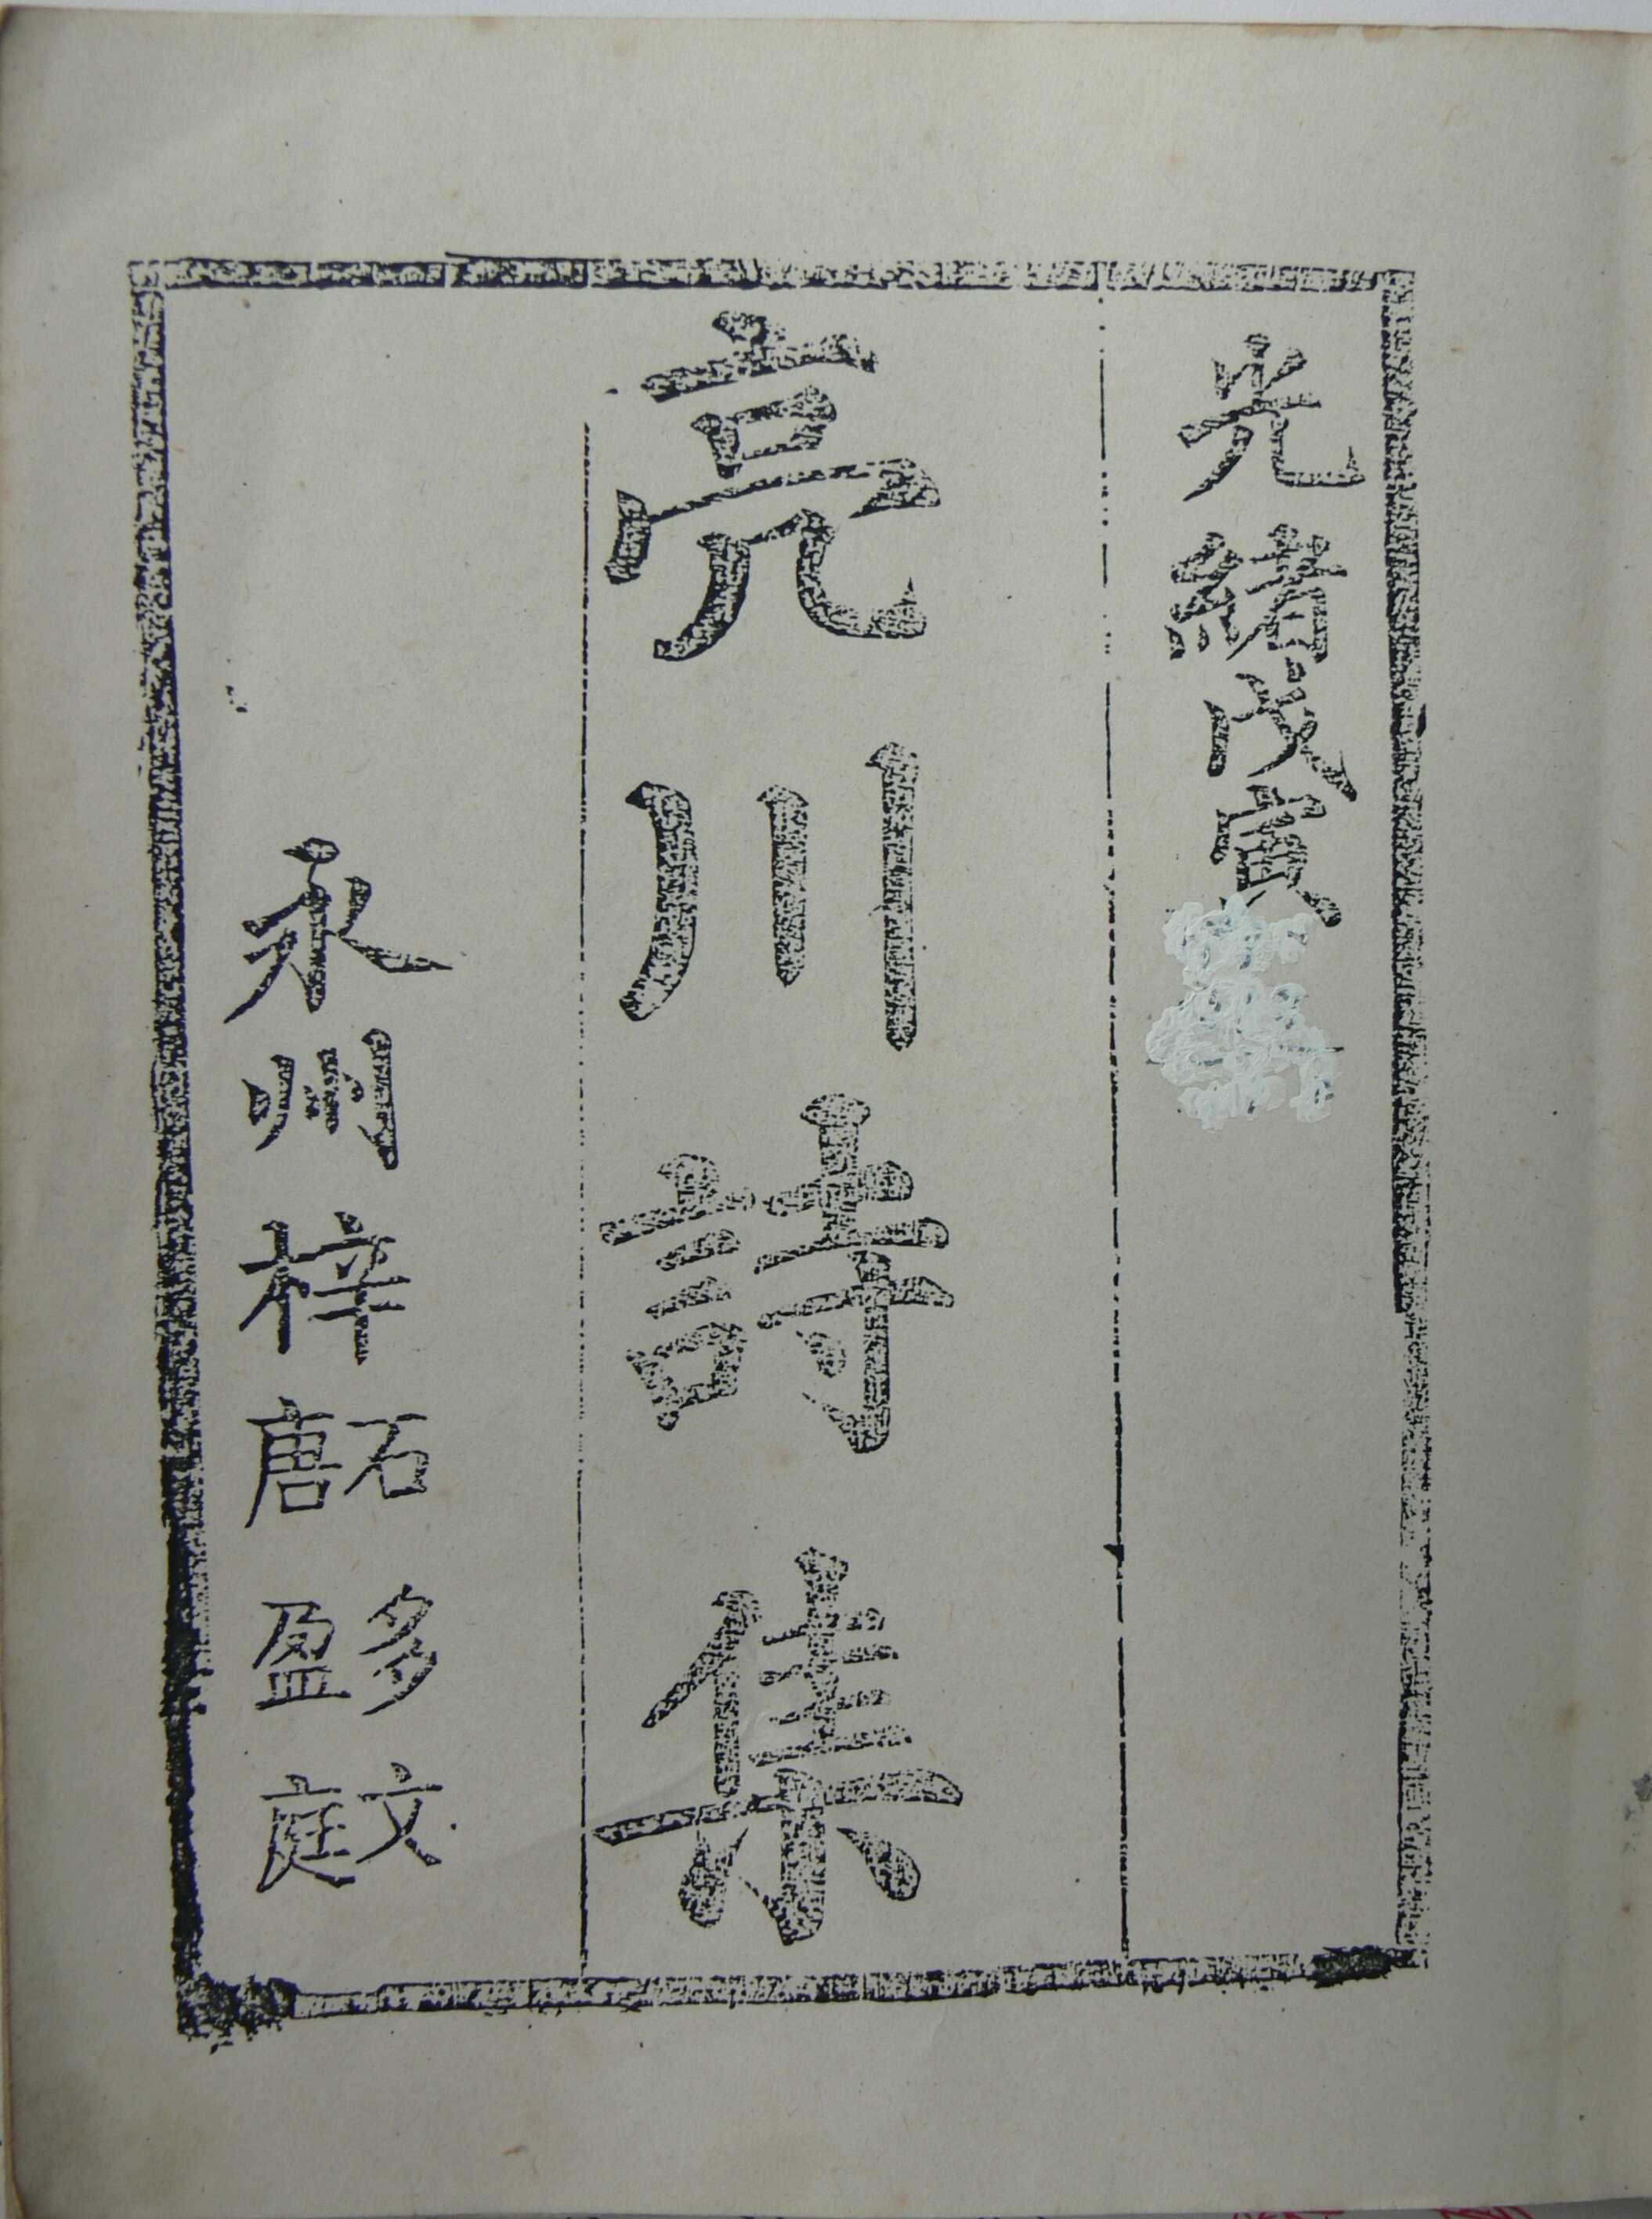 光緒戊寅
亮川詩集
永州梓
石多文
唐盈庭